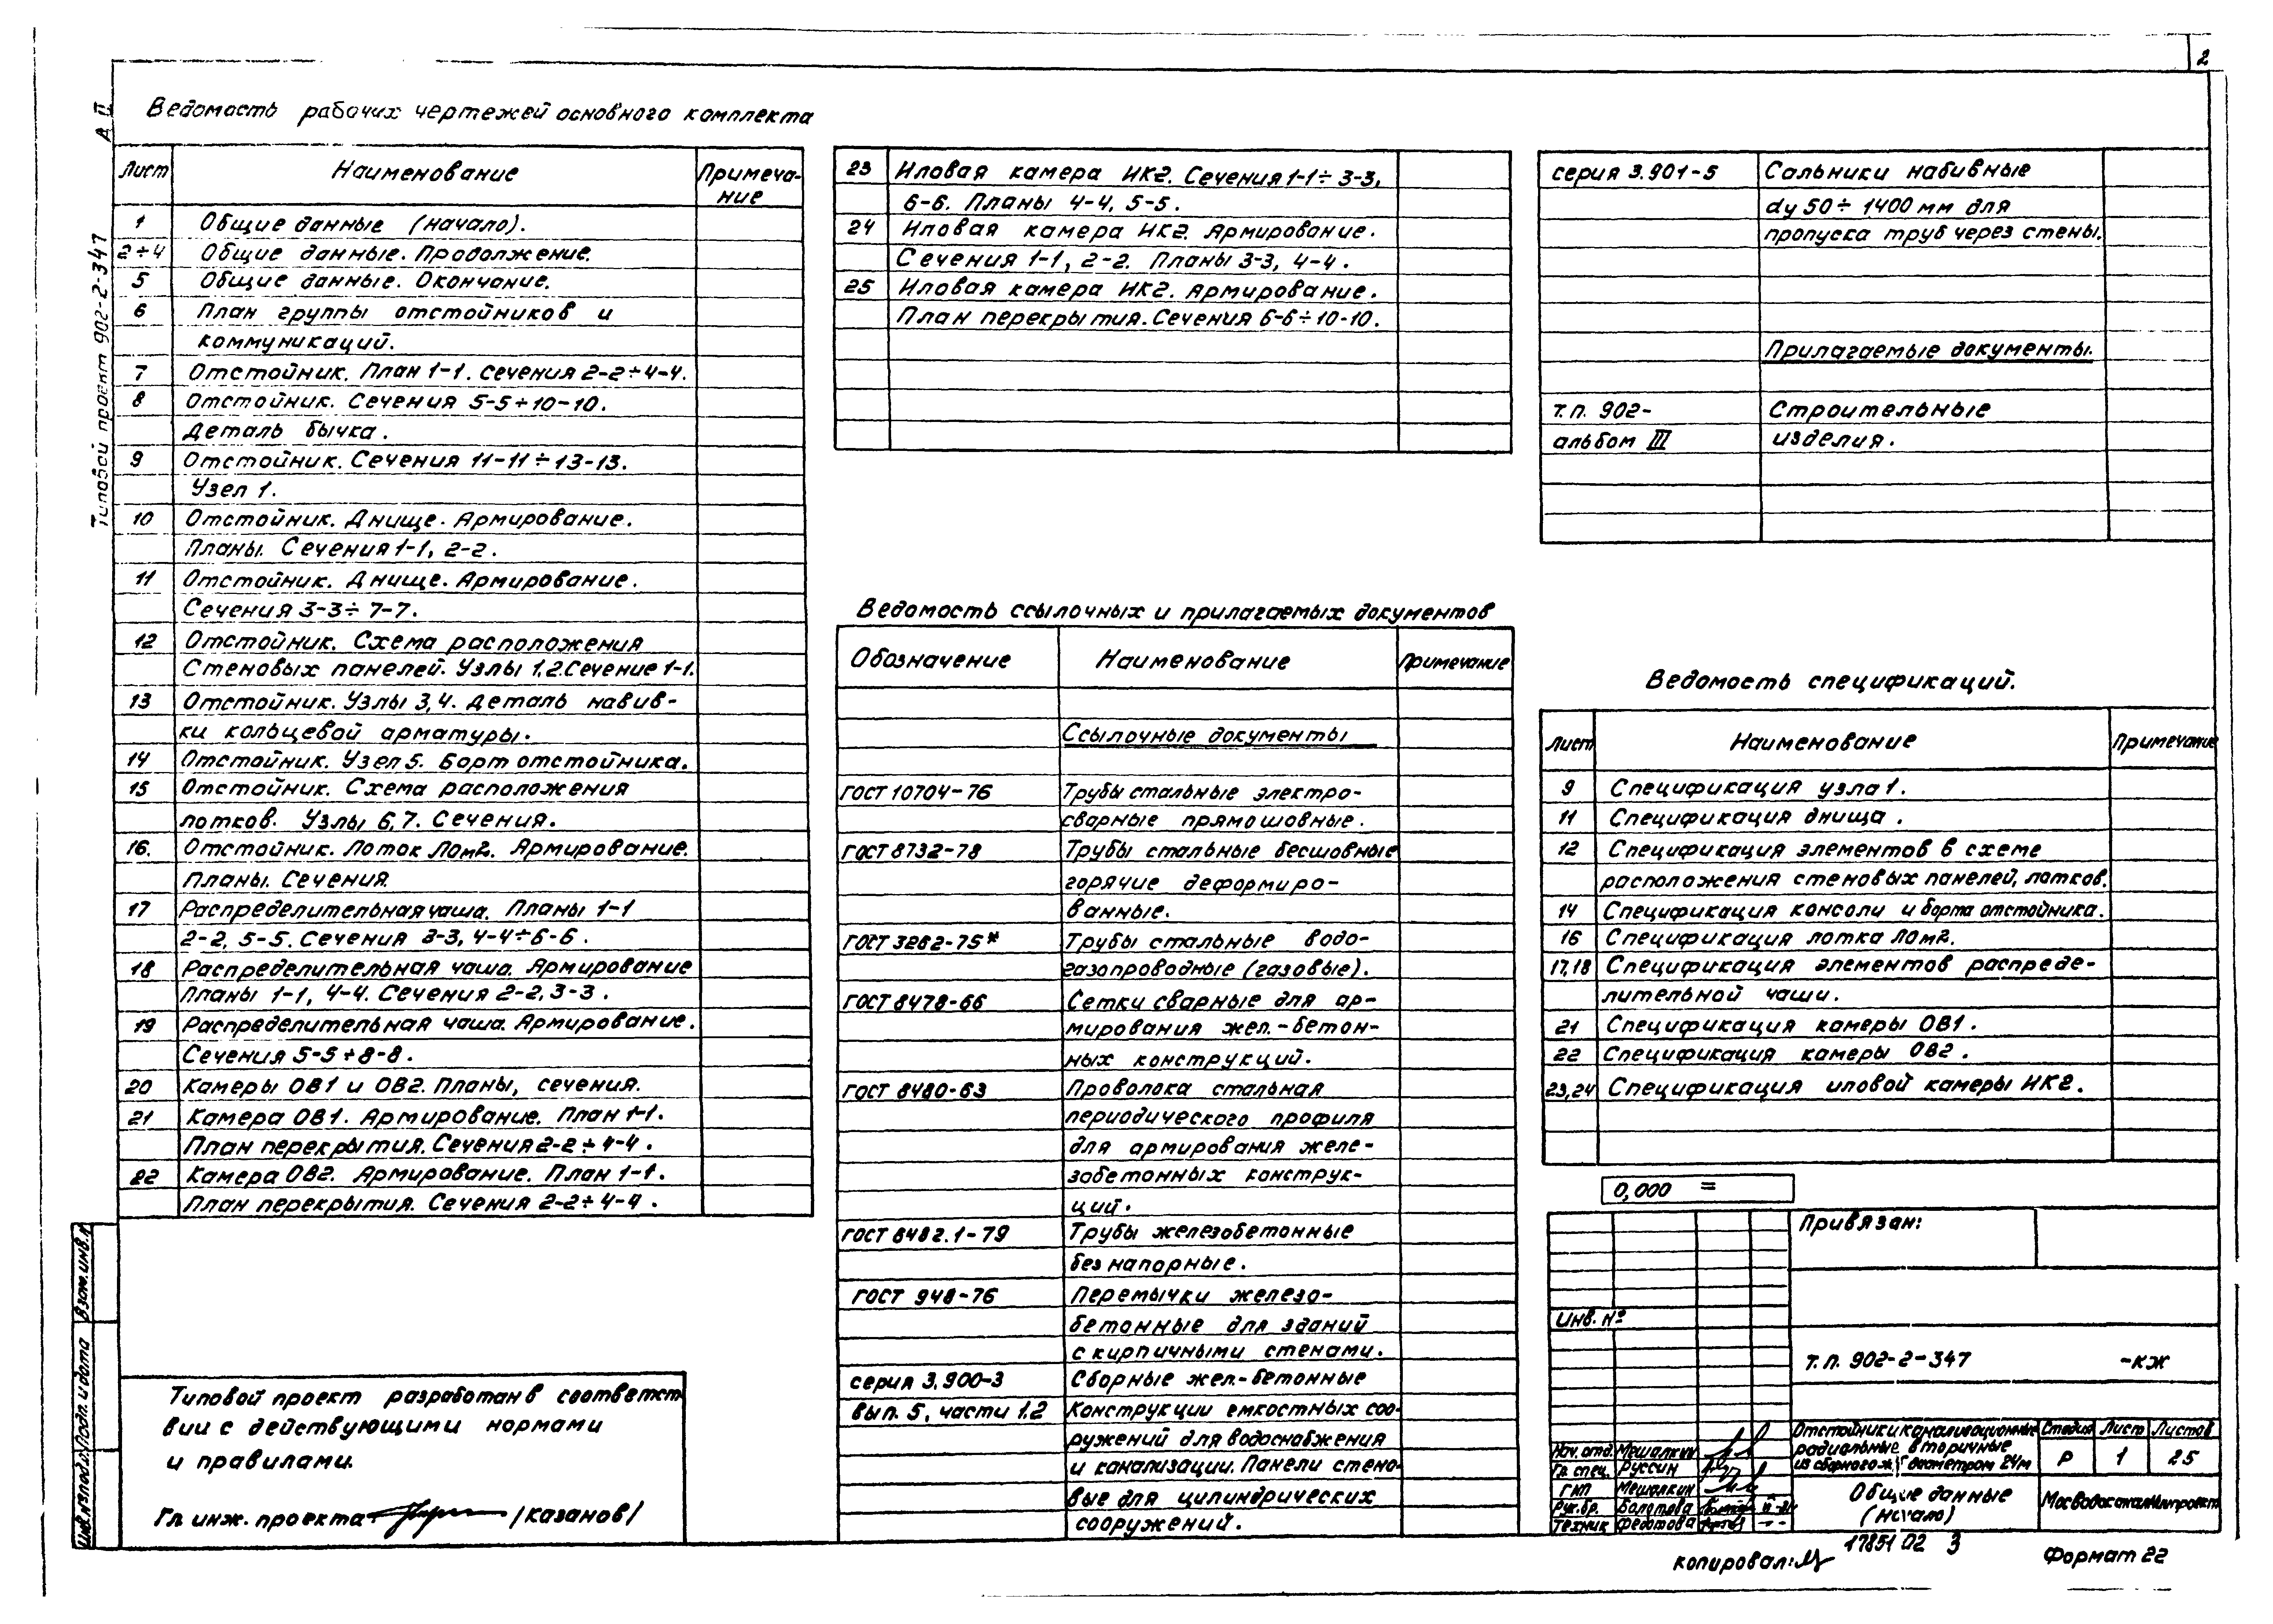 2
А II
Типовой проект 902-2-347
Ведомость рабочих чертежей основного комплекта
Лист Наименование Примеча-
ние
1 Общие данные (начало).
2÷4 Общие данные. Продолжение.
5 Общие данные. Окончание.
6 План группы отстойников и
коммуникаций.
7 Отстойник. План 1-1. Сечения 2-2÷4-4.
8 Отстойник. Сечения 5-5÷10-10.
Деталь бычка.
9 Отстойник. Сечения 11-11÷13-13.
Узел 1.
10 Отстойник. Днище. Армирование.
Планы. Сечения 1-1, 2-2.
11 Отстойник. Днище. Армирование.
Сечения 3-3÷7-7.
12 Отстойник. Схема расположения
Стеновых панелей. Узлы 1,2. Сечение 1-1.
13 Отстойник. Узлы 3,4. Деталь навив-
ки кольцевой арматуры.
14 Отстойник. Узел 5. Борт отстойника.
15 Отстойник. Схема расположения
лотков. Узлы 6,7. Сечения.
16. Отстойник. Лоток Лом2. Армирование.
Планы. Сечения.
17 Распределительная чаша. Планы 1-1
2-2, 5-5. Сечения 3-3, 4-4÷6-6.
18 Распределительная чаша. Армирование
Планы 1-1, 4-4. Сечения 2-2, 3-3.
19 Распределительная чаша. Армирование.
Сечения 5-5÷8-8.
20 Камеры ОВ1 и ОВ2. Планы, сечения.
21 Камера ОВ1. Армирование. План 1-1.
План перекрытия. Сечения 2-2÷4-4.
22 Камера ОВ2. Армирование. План 1-1.
План перекрытия. Сечения 2-2÷4-4.
23 Иловая камера ИК2. Сечения 1-1÷3-3,
6-6. Планы 4-4, 5-5.
24 Иловая камера ИК2. Армирование.
Сечения 1-1, 2-2. Планы 3-3, 4-4.
25 Иловая камера ИК2. Армирование.
План перекрытия. Сечения 6-6÷10-10.
Ведомость ссылочных и прилагаемых документов
Обозначение Наименование Примечание
Ссылочные документы
ГОСТ 10704-76 Трубы стальные электро-
сварные прямошовные.
ГОСТ 8732-78 Трубы стальные бесшовные
горячие деформиро-
ванные.
ГОСТ 3262-75* Трубы стальные водо-
газопроводные (газовые).
ГОСТ 8478-66 Сетки сварные для ар-
мирования жел.-бетон-
ных конструкций.
ГОСТ 8480-63 Проволока стальная
периодического профиля
для армирования желе-
зобетонных конструк-
ций.
ГОСТ 6482.1-79 Трубы железобетонные
безнапорные.
ГОСТ 948-76 Перемычки железо-
бетонные для зданий
с кирпичными стенами.
серия 3.900-3 Сборные жел.-бетонные
вып. 5, части 1.2 Конструкции емкостных соо-
ружений для водоснабжения
и канализации. Панели стено-
вые для цилиндрических
сооружений.
серия 3.901-5 Сальники набивные
dу 50÷1400 мм для
пропуска труб через стены.
Прилагаемые документы.
т.п. 902- Строительные
альбом III изделия.
Ведомость спецификаций.
Лист Наименование Примечание
9 Спецификация узла 1.
11 Спецификация днища.
12 Спецификация элементов в схеме
расположения стеновых панелей, лотков.
14 Спецификация консоли и борта отстойника.
16 Спецификация лотка Лом2.
17,18 Спецификация элементов распреде-
лительной чаши.
21 Спецификация камеры ОВ1.
22 Спецификация камеры ОВ2.
23,24 Спецификация иловой камеры ИК2.
0,000 =
Привязан:
Инв. №
т.п. 902-2-347 -КЖ
Отстойники канализационные
радиальные вторичные
из сборного ж/б диаметром 24м
Стадия Лист Листов
Р 1 25
Нач. отд. Мешалкин
Гл. спец. Руссин
ГИП Мешалкин
Рук. бр. Болотова
Техник Федотова
Общие данные
(начало)
Мосводоканалниипроект
Взам. инв. №
Подп. и дата
Инв. № подл.
Типовой проект разработан в соответст
вии с действующими нормами
и правилами.
Гл. инж. проекта /Казанов/
Копировал:
17851 02 3
Формат 22